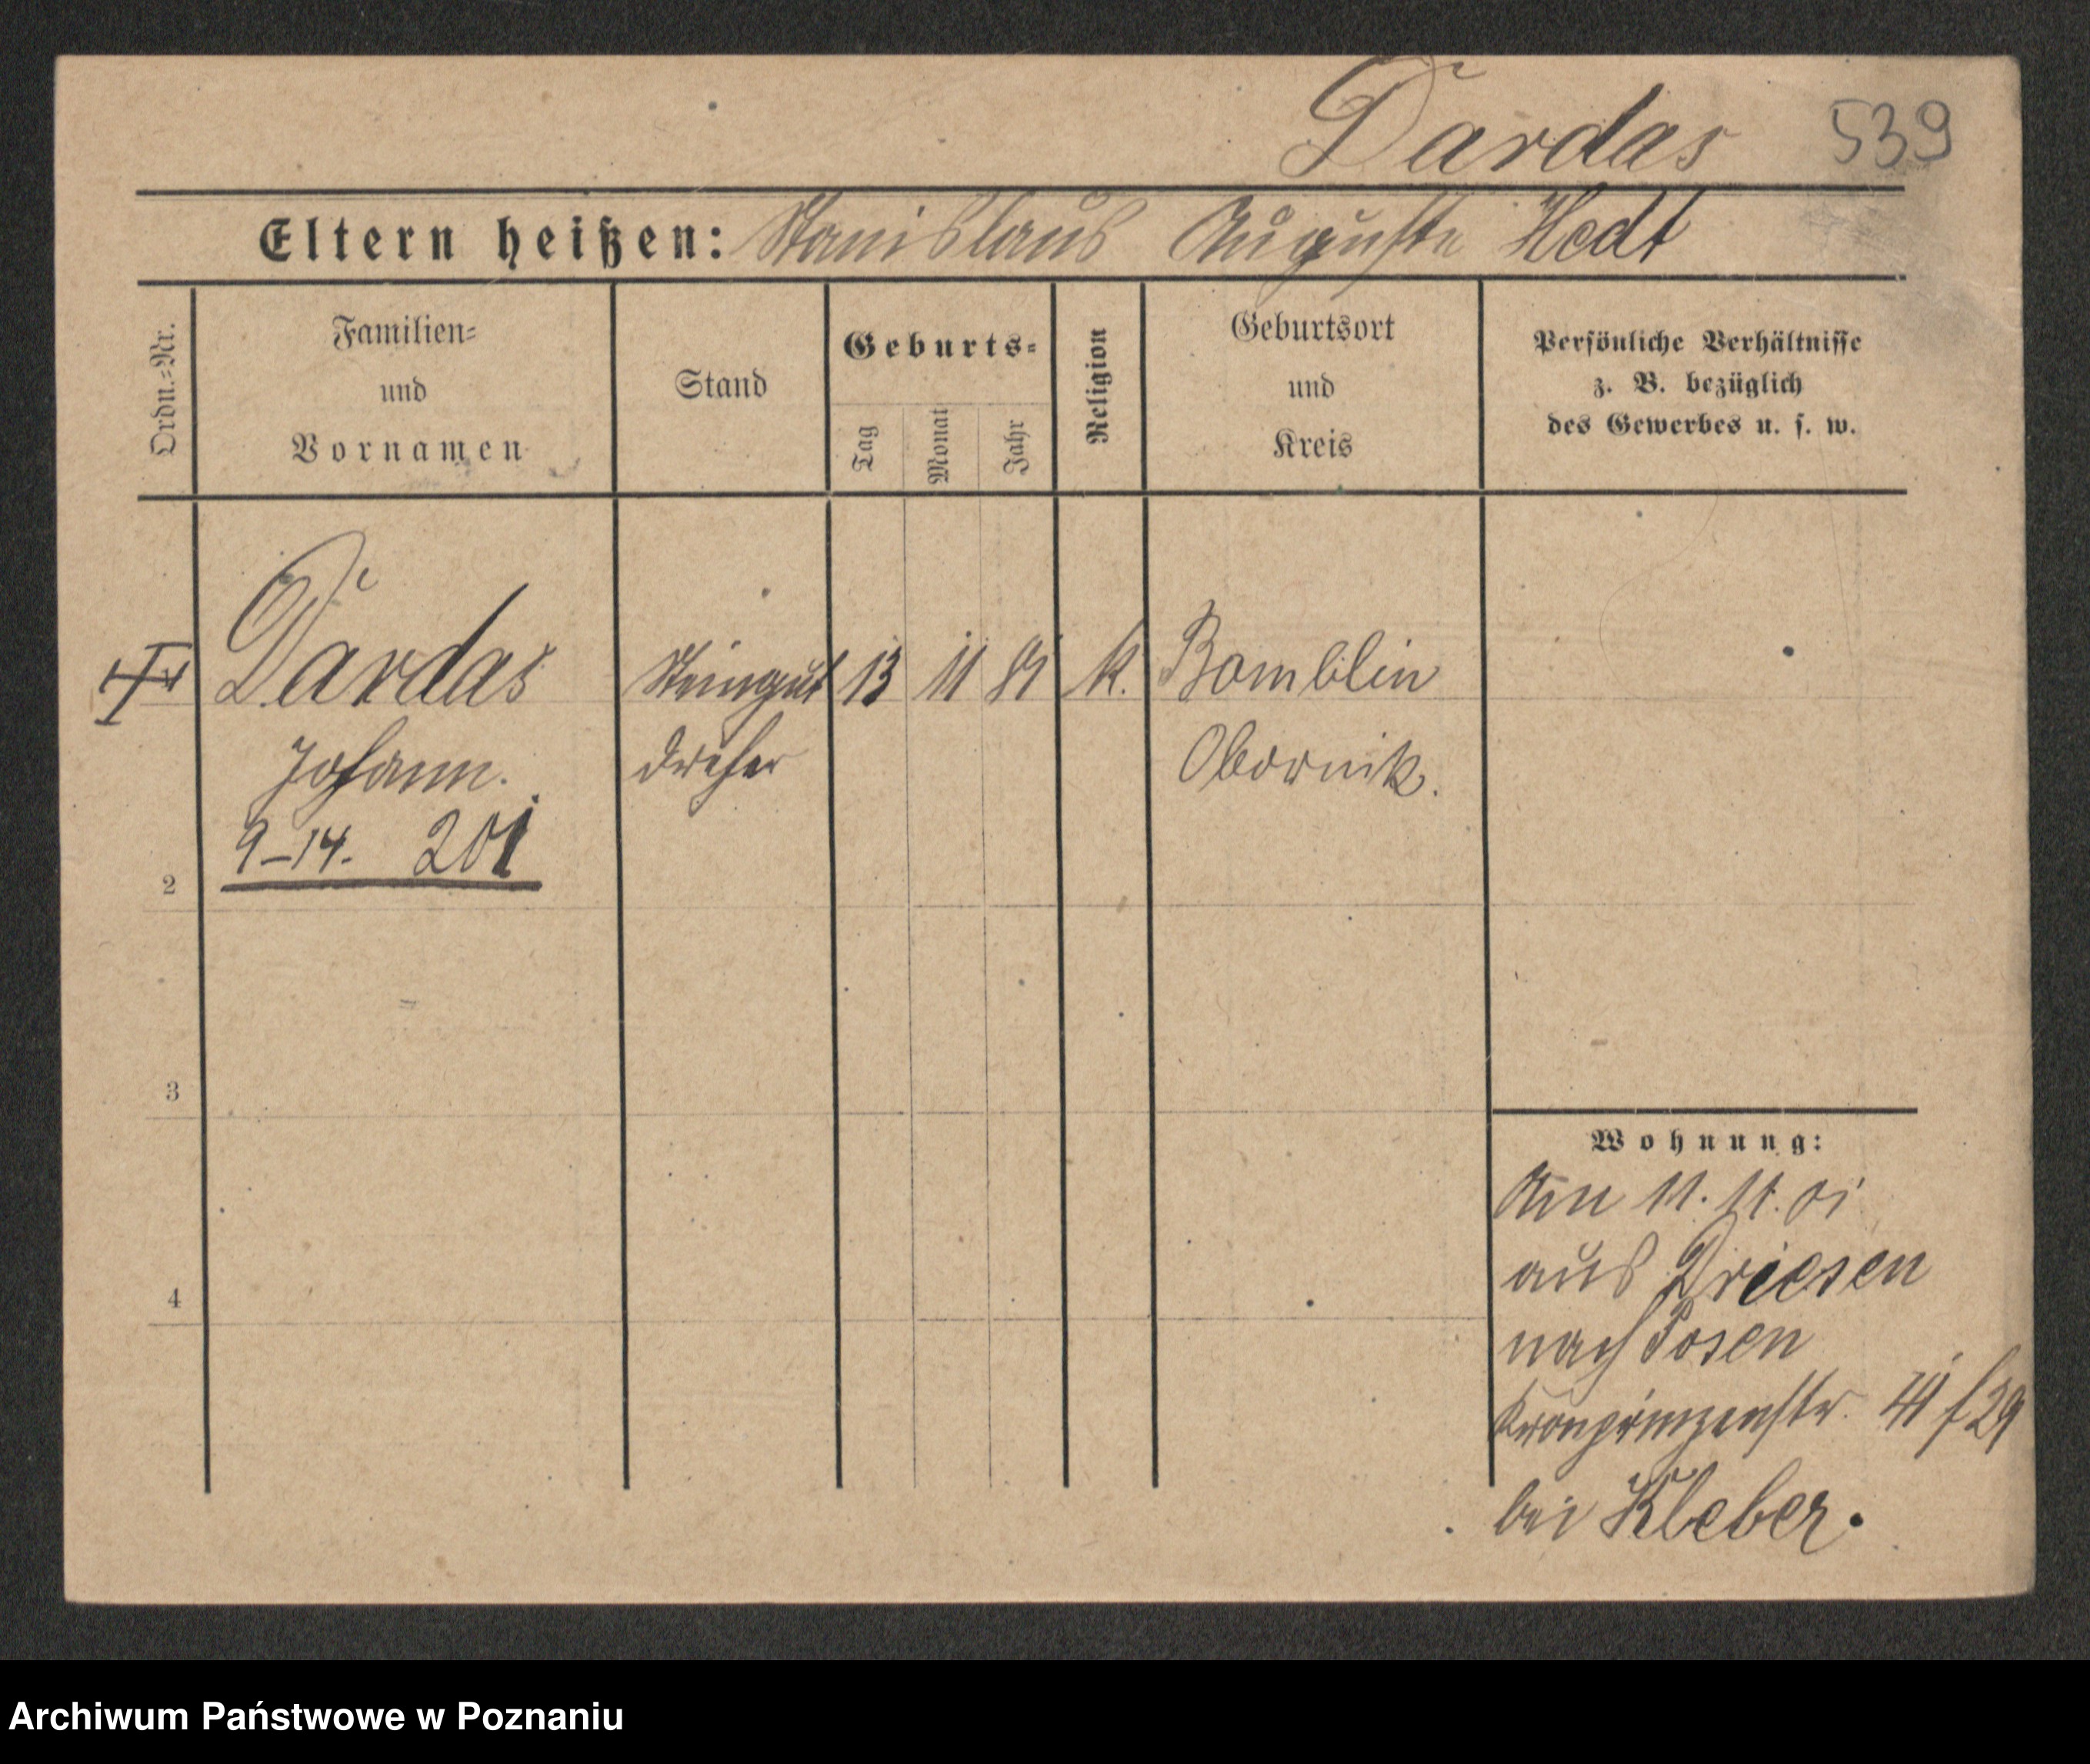 Dardas 539
Eltern heißen: Stanislaus Auguste Hedt
Ordn.=Nr.
Familien=
und
Vornamen
Stand
Geburts=
Tag
Monat
Jahr
Religion
Geburtsort
und
Kreis
Persönliche Verhältnisse
z. B. bezüglich
des Gewerbes u. s. w.
Dardas Steingut 13 11 81 k. Bomblin
Johann. dreher Obornik.
9-14. 201
2
3
4
Wohnung:
Am 11. 11. 01
aus Driesen
nach Posen
Kronprinzenstr. f 29
bei Kleber.
Archiwum Państwowe w Poznaniu